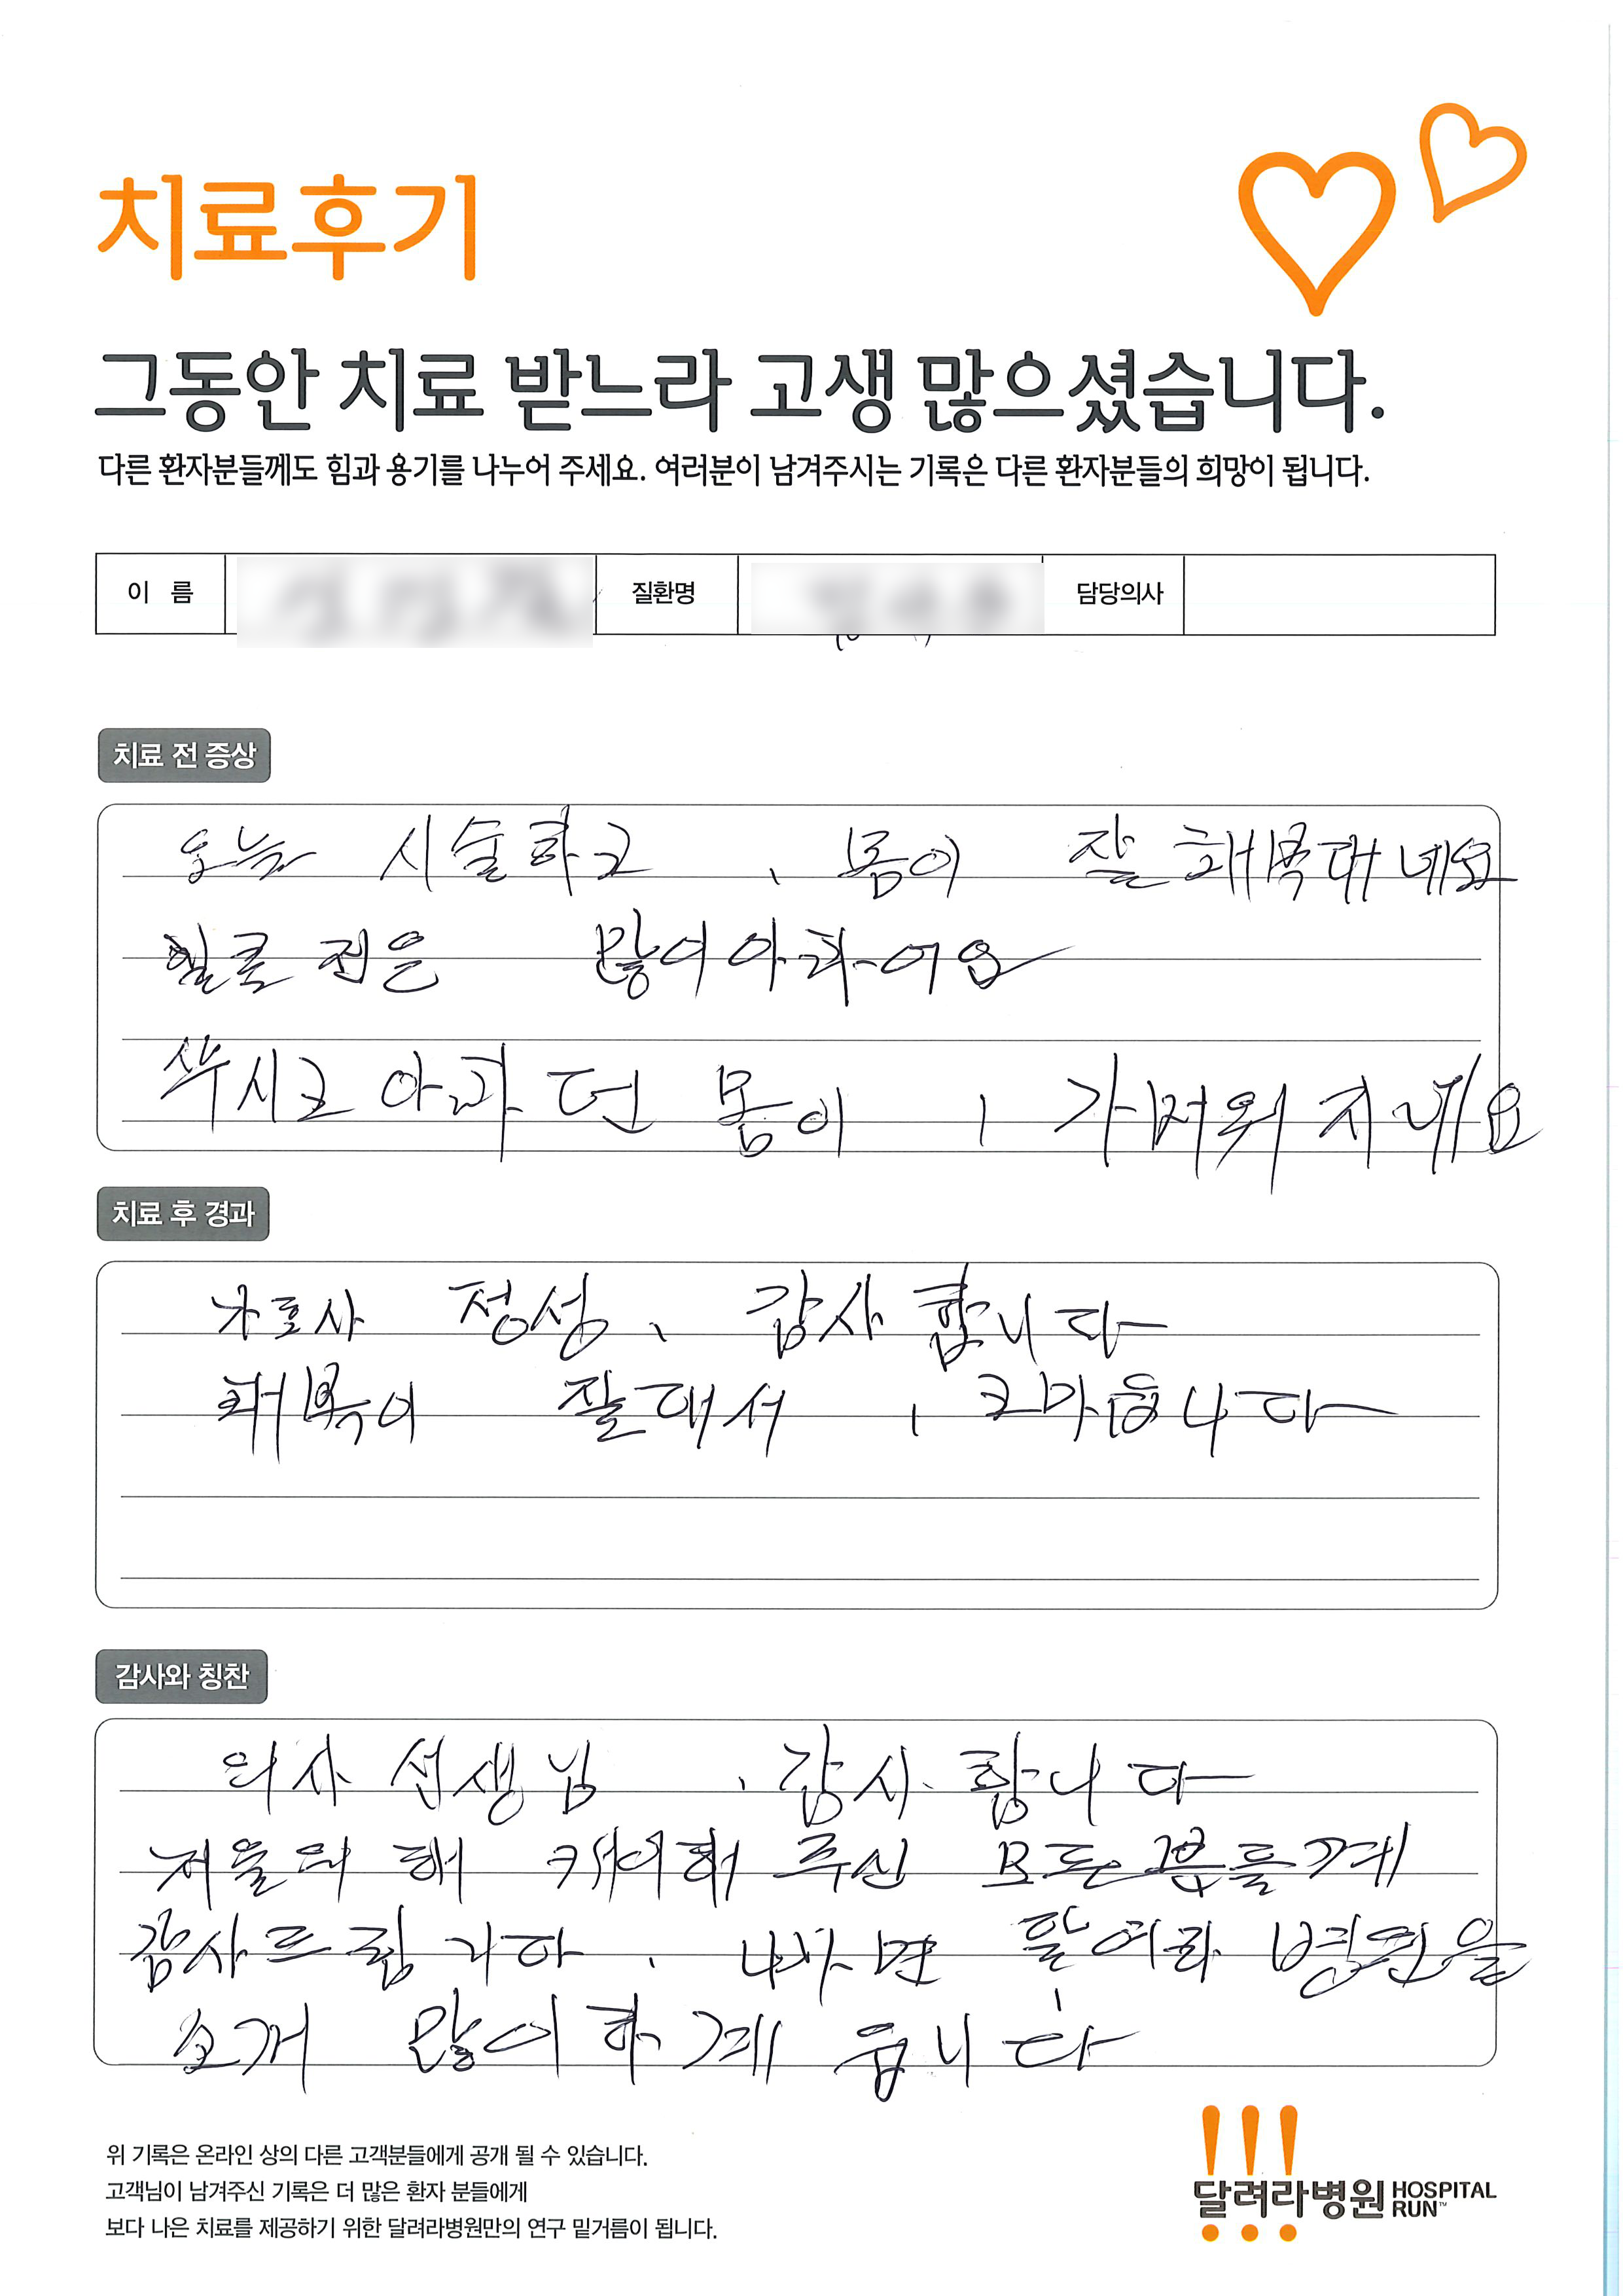 치료후기
그동안 치료 받느라 고생 많으셨습니다.
다른 환자분들께도 힘과 용기를 나누어 주세요. 여러분이 남겨주시는 기록은 다른 환자분들의 희망이 됩니다.
이 름 질환명 담당의사
치료 전 증상
오늘 시술하고, 몸이 잘 해복대네요
전은 많이아파어요
쑤시고 아파던 몸이, 가벼워지네요
치료 후 경과
가호사 정성, 감사합니다
해복이 잘대서, 고마웁니다
감사와 칭찬
의사 선생님, 감사합니다
저을의해 캐어해 주신 모든분들게
감사드립니다. 나가면 달여라병원을
소개 많이하게 웁니다
위 기록은 온라인 상의 다른 고객분들에게 공개 될 수 있습니다.
고객님이 남겨주신 기록은 더 많은 환자 분들에게
보다 나은 치료를 제공하기 위한 달려라병원만의 연구 밑거름이 됩니다.
달려라병원 HOSPITAL RUN™